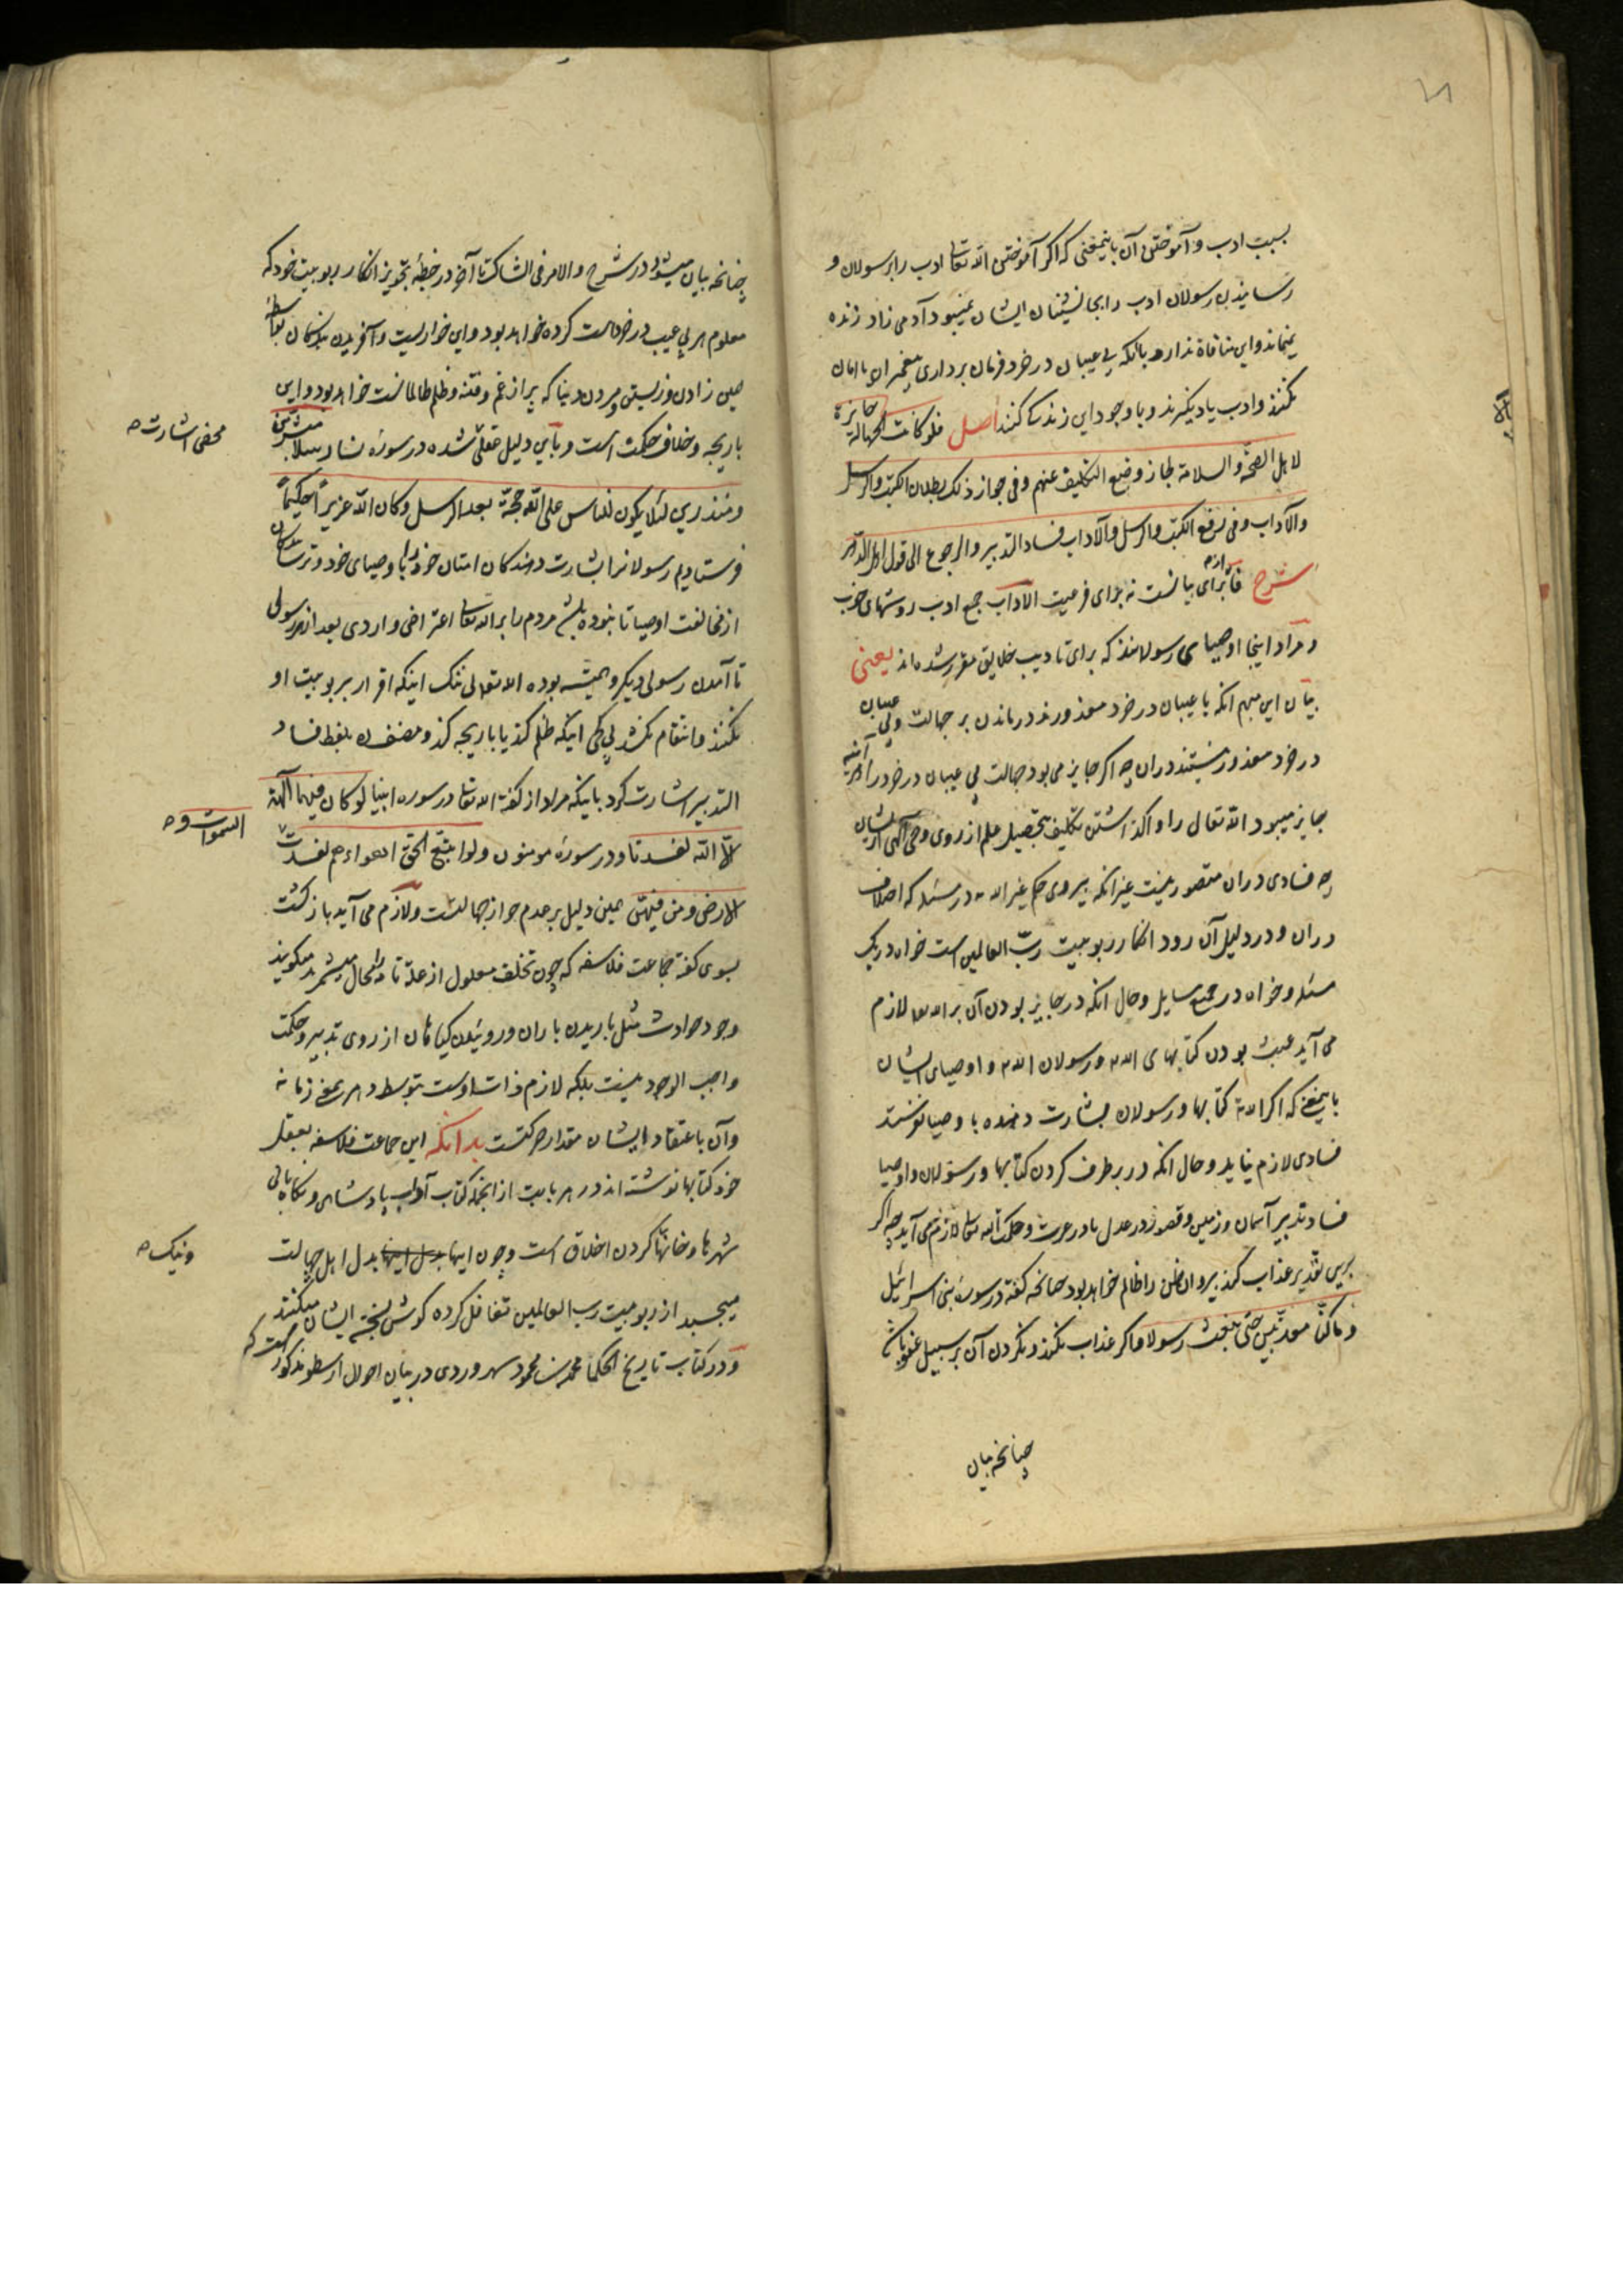 بسبب ادب و آموختن آن باینمعنی که اگر آموختن الله تعالی ادب را برسولان و
رسانیدن رسولان ادب را بجانشینان ایشان نمیبود آدمی زاد زنده
نمیماند و این منافاة ندارد بآنکه بی عیبان در خرد فرمان برداری پیغمبران و امامان
نکنند و ادب یاد نگیرند و با وجود این زندگانی کنند اصل فلو کانت الجهالة جایزة
لاهل الصحة و السلامة لجاز وضع التکلیف عنهم و فی جواز ذلک بطلان الکتب و الرسل
و الآداب و فی رفع الکتب و الرسل و الآداب فساد التدبیر و الرجوع الی قول اهل الدهر
شرح فا برای بیانست نه برای فرعیت الآداب جمع ادب روشهای خوب
و مراد اینجا اوصیای رسولانند که برای تادیب خلایق مقرر شده اند یعنی
بیان این مبهم آنکه با عیبان در خرد معذورند در ماندن بر جهالت و بی عیبان
در خرد معذور نیستند در آن چه اگر جایز می بود جهالت بی عیبان در خرد را هر آینه
جایز میبود الله تعالی را واگذاشتن تکلیف تحصیل علم از روی وحی الهی از ایشان
چه فسادی در آن متصور نیست غیر آنکه پیروی حکم غیر الله در مسئله که اختلاف
در آن و در دلیل آن رود انکار ربوبیت رب العالمین است خواه در یک
مسئله و خواه در جمیع مسایل و حال آنکه در جایز بودن آن بر الله تعالی لازم
می آید عبث بودن کتابهای الله و رسولان الله و اوصیای ایشان
باینمعنی که اگر الله کتابها و رسولان بشارت دهنده باوصیا نفرستد
فسادی لازم نیاید و حال آنکه در برطرف کردن کتابها و رسولان و اوصیا
فساد تدبیر آسمان و زمین و قصور در عدل یا در عزت و حکمت الله تعالی لازم می آید چه اگر
برین تقدیر عذاب کند پیروان ظن را ظالم خواهد بود چنانچه گفته در سوره بنی اسرائیل
و ما کنا معذبین حتی نبعث رسولا و اگر عذاب نکند و نکردن آن بر سبیل عفو باشد
چنانچه بیان
چنانچه بیان میشود در شرح و الامر فی الشاک تا آخر در خطبه تجویز انکار ربوبیت خود که
معلوم هر بی عیب در خرد است کرده خواهد بود و این خواریست و آفریدن بندگان بواسطه
همین زادن و زیستن و مردن در دنیا که پر از غم و فتنه و ظلم ظالمانست خواهد بود و این
بازیچه و خلاف حکمت است و باین دلیل عقلی شده در سوره نسا رسلا مبشرین
محض اشارت صح
و منذرین لئلا یکون للناس علی الله حجة بعد الرسل و کان الله عزیزا حکیما
فرستادیم رسولانرا بشارت دهندگان امتان خود را باوصیای خود و ترسانندگان
از مخالفت اوصیا تا نبوده باشد مردم را بر الله تعالی اعتراضی واردی بعد از هر رسولی
تا آمدن رسولی دیگر و همیشه بوده الله تعالی ننگ اینکه اقرار بر ربوبیت او
نکنند و انتقام نکشد بی کمی اینکه ظلم کند یا بازیچه کند و مصنف بلفظ فساد
التدبیر اشارت کرد باینکه مراد از گفته الله تعالی در سوره انبیا لو کان فیهما آلهة
الا الله لفسدتا و در سوره مومنون و لو اتبع الحق اهواءهم لفسدت
السموات و صح
الارض و من فیهن همین دلیل بر عدم جواز جهالتست و لازم می آید بازگشت
بسوی گفته جماعت فلاسفه که چون تخلف معلول از علة تامه را محال میشمرند میگویند
وجود حوادث مثل باریدن باران و روئیدن گیاهان از روی تدبیر و حکمت
واجب الوجود نیست بلکه لازم ذات اوست بتوسط دهر یعنی زمانه
و آن باعتقاد ایشان مقدار حرکتست بدانکه این جماعت فلاسفه بعقل
خود کتابها نوشته اند در هر بابت از آنجمله کتاب آداب پادشاهی و نگاه بانی
شهرها و خانها کردن اخلاق است و چون اینها بدل اینها بدل اهل جهالت
ونیک صح
میچسبد از ربوبیت رب العالمین تغافل کرده گوش بگفته ایشان میکنند
و در کتاب تاریخ الحکما محمد بن محمود سهروردی در بیان احوال ارسطو مذکور است که